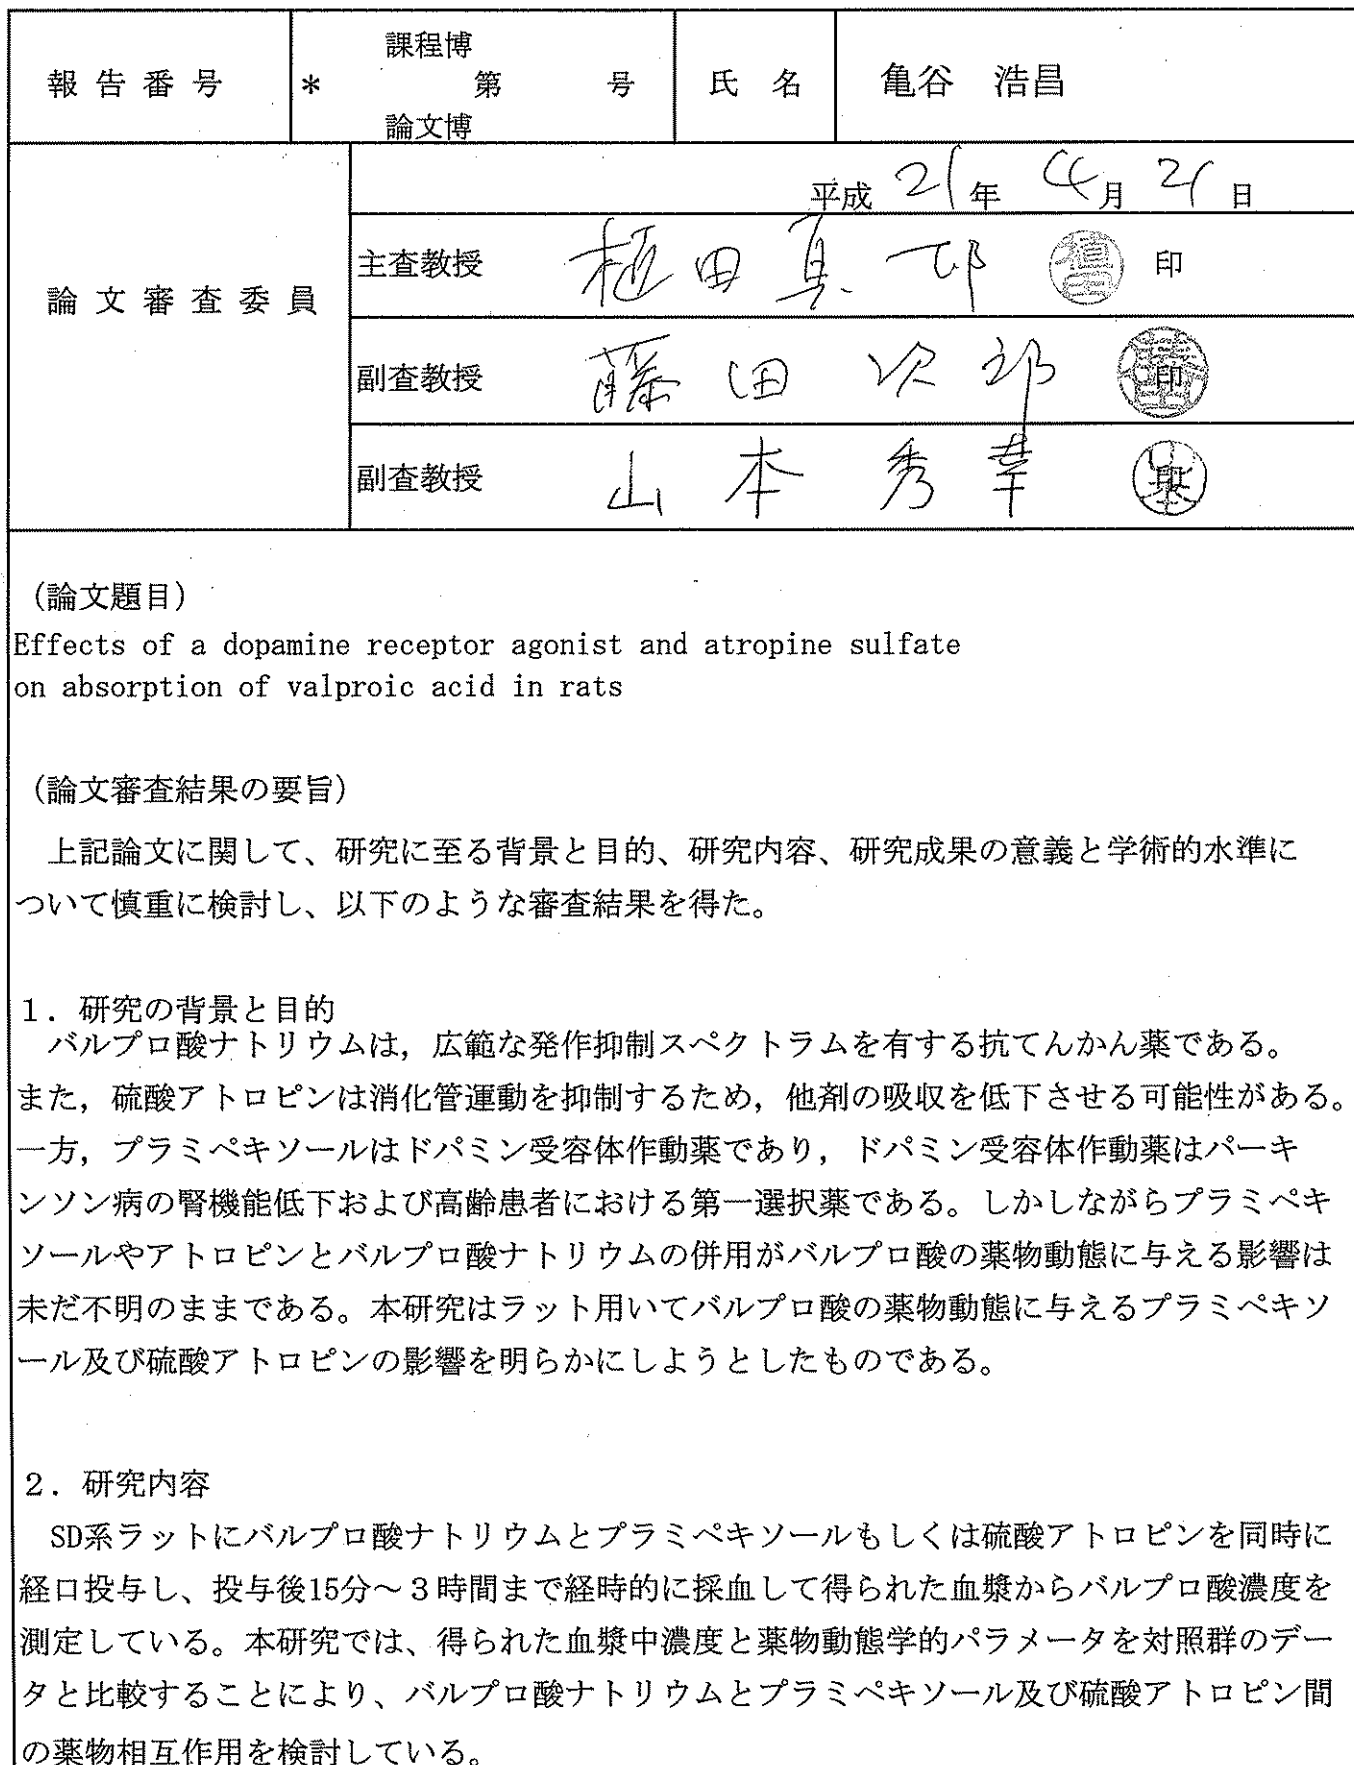 報告番号 * 課程博 第 号 論文博 氏名 亀谷 浩昌
論文審査委員
平成 21年 4月 21日
主査教授 植田真一郎 印
副査教授 藤田次郎 印
副査教授 山本秀幸
(論文題目)
Effects of a dopamine receptor agonist and atropine sulfate
on absorption of valproic acid in rats
(論文審査結果の要旨)
上記論文に関して、研究に至る背景と目的、研究内容、研究成果の意義と学術的水準に
ついて慎重に検討し、以下のような審査結果を得た。
1．研究の背景と目的
バルプロ酸ナトリウムは，広範な発作抑制スペクトラムを有する抗てんかん薬である。
また，硫酸アトロピンは消化管運動を抑制するため，他剤の吸収を低下させる可能性がある。
一方，プラミペキソールはドパミン受容体作動薬であり，ドパミン受容体作動薬はパーキ
ンソン病の腎機能低下および高齢患者における第一選択薬である。しかしながらプラミペキ
ソールやアトロピンとバルプロ酸ナトリウムの併用がバルプロ酸の薬物動態に与える影響は
未だ不明のままである。本研究はラット用いてバルプロ酸の薬物動態に与えるプラミペキソ
ール及び硫酸アトロピンの影響を明らかにしようとしたものである。
2．研究内容
SD系ラットにバルプロ酸ナトリウムとプラミペキソールもしくは硫酸アトロピンを同時に
経口投与し、投与後15分～３時間まで経時的に採血して得られた血漿からバルプロ酸濃度を
測定している。本研究では、得られた血漿中濃度と薬物動態学的パラメータを対照群のデー
タと比較することにより、バルプロ酸ナトリウムとプラミペキソール及び硫酸アトロピン間
の薬物相互作用を検討している。